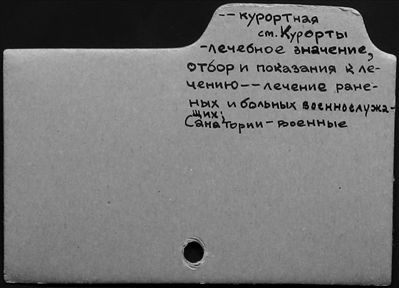 -- курортная
см. Курорты
-лечебное значение,
отбор и показания к ле-
чению -- лечение ране-
ных и больных военнослужа-
щих;
Санатории - военные